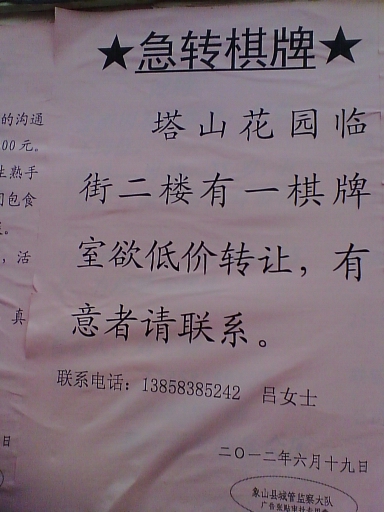 ★急转棋牌★
塔山花园临
街二楼有一棋牌
室欲低价转让，有
意者请联系。
联系电话：13858385242 吕女士
二〇一二年六月十九日
象山县城管监察大队
的沟通
00元。
生熟手
包食
，活
真
日